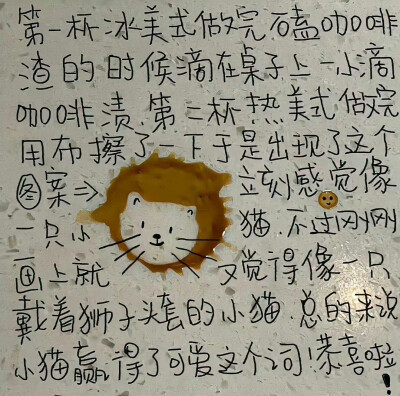 第一杯冰美式做完 磕咖啡
渣的时候滴在桌子上一小滴
咖啡渍.第二杯热美式做完
用布擦了一下于是出现了这个
图案⇒ 立刻感觉像
一只小 猫.不过刚刚
画上就 又觉得像一只
戴着狮子头套的小猫.总的来说
小猫赢得了可爱这个词!恭喜啦!